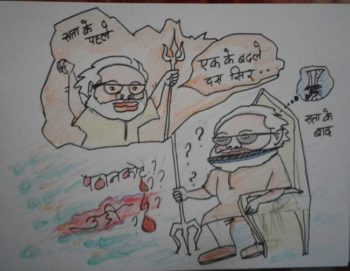 सत्ता के
पहले
एक के बदले
दस सिर..
सत्ता के
बाद
? ? ? ? ?
पठानकोट??
उरी ???